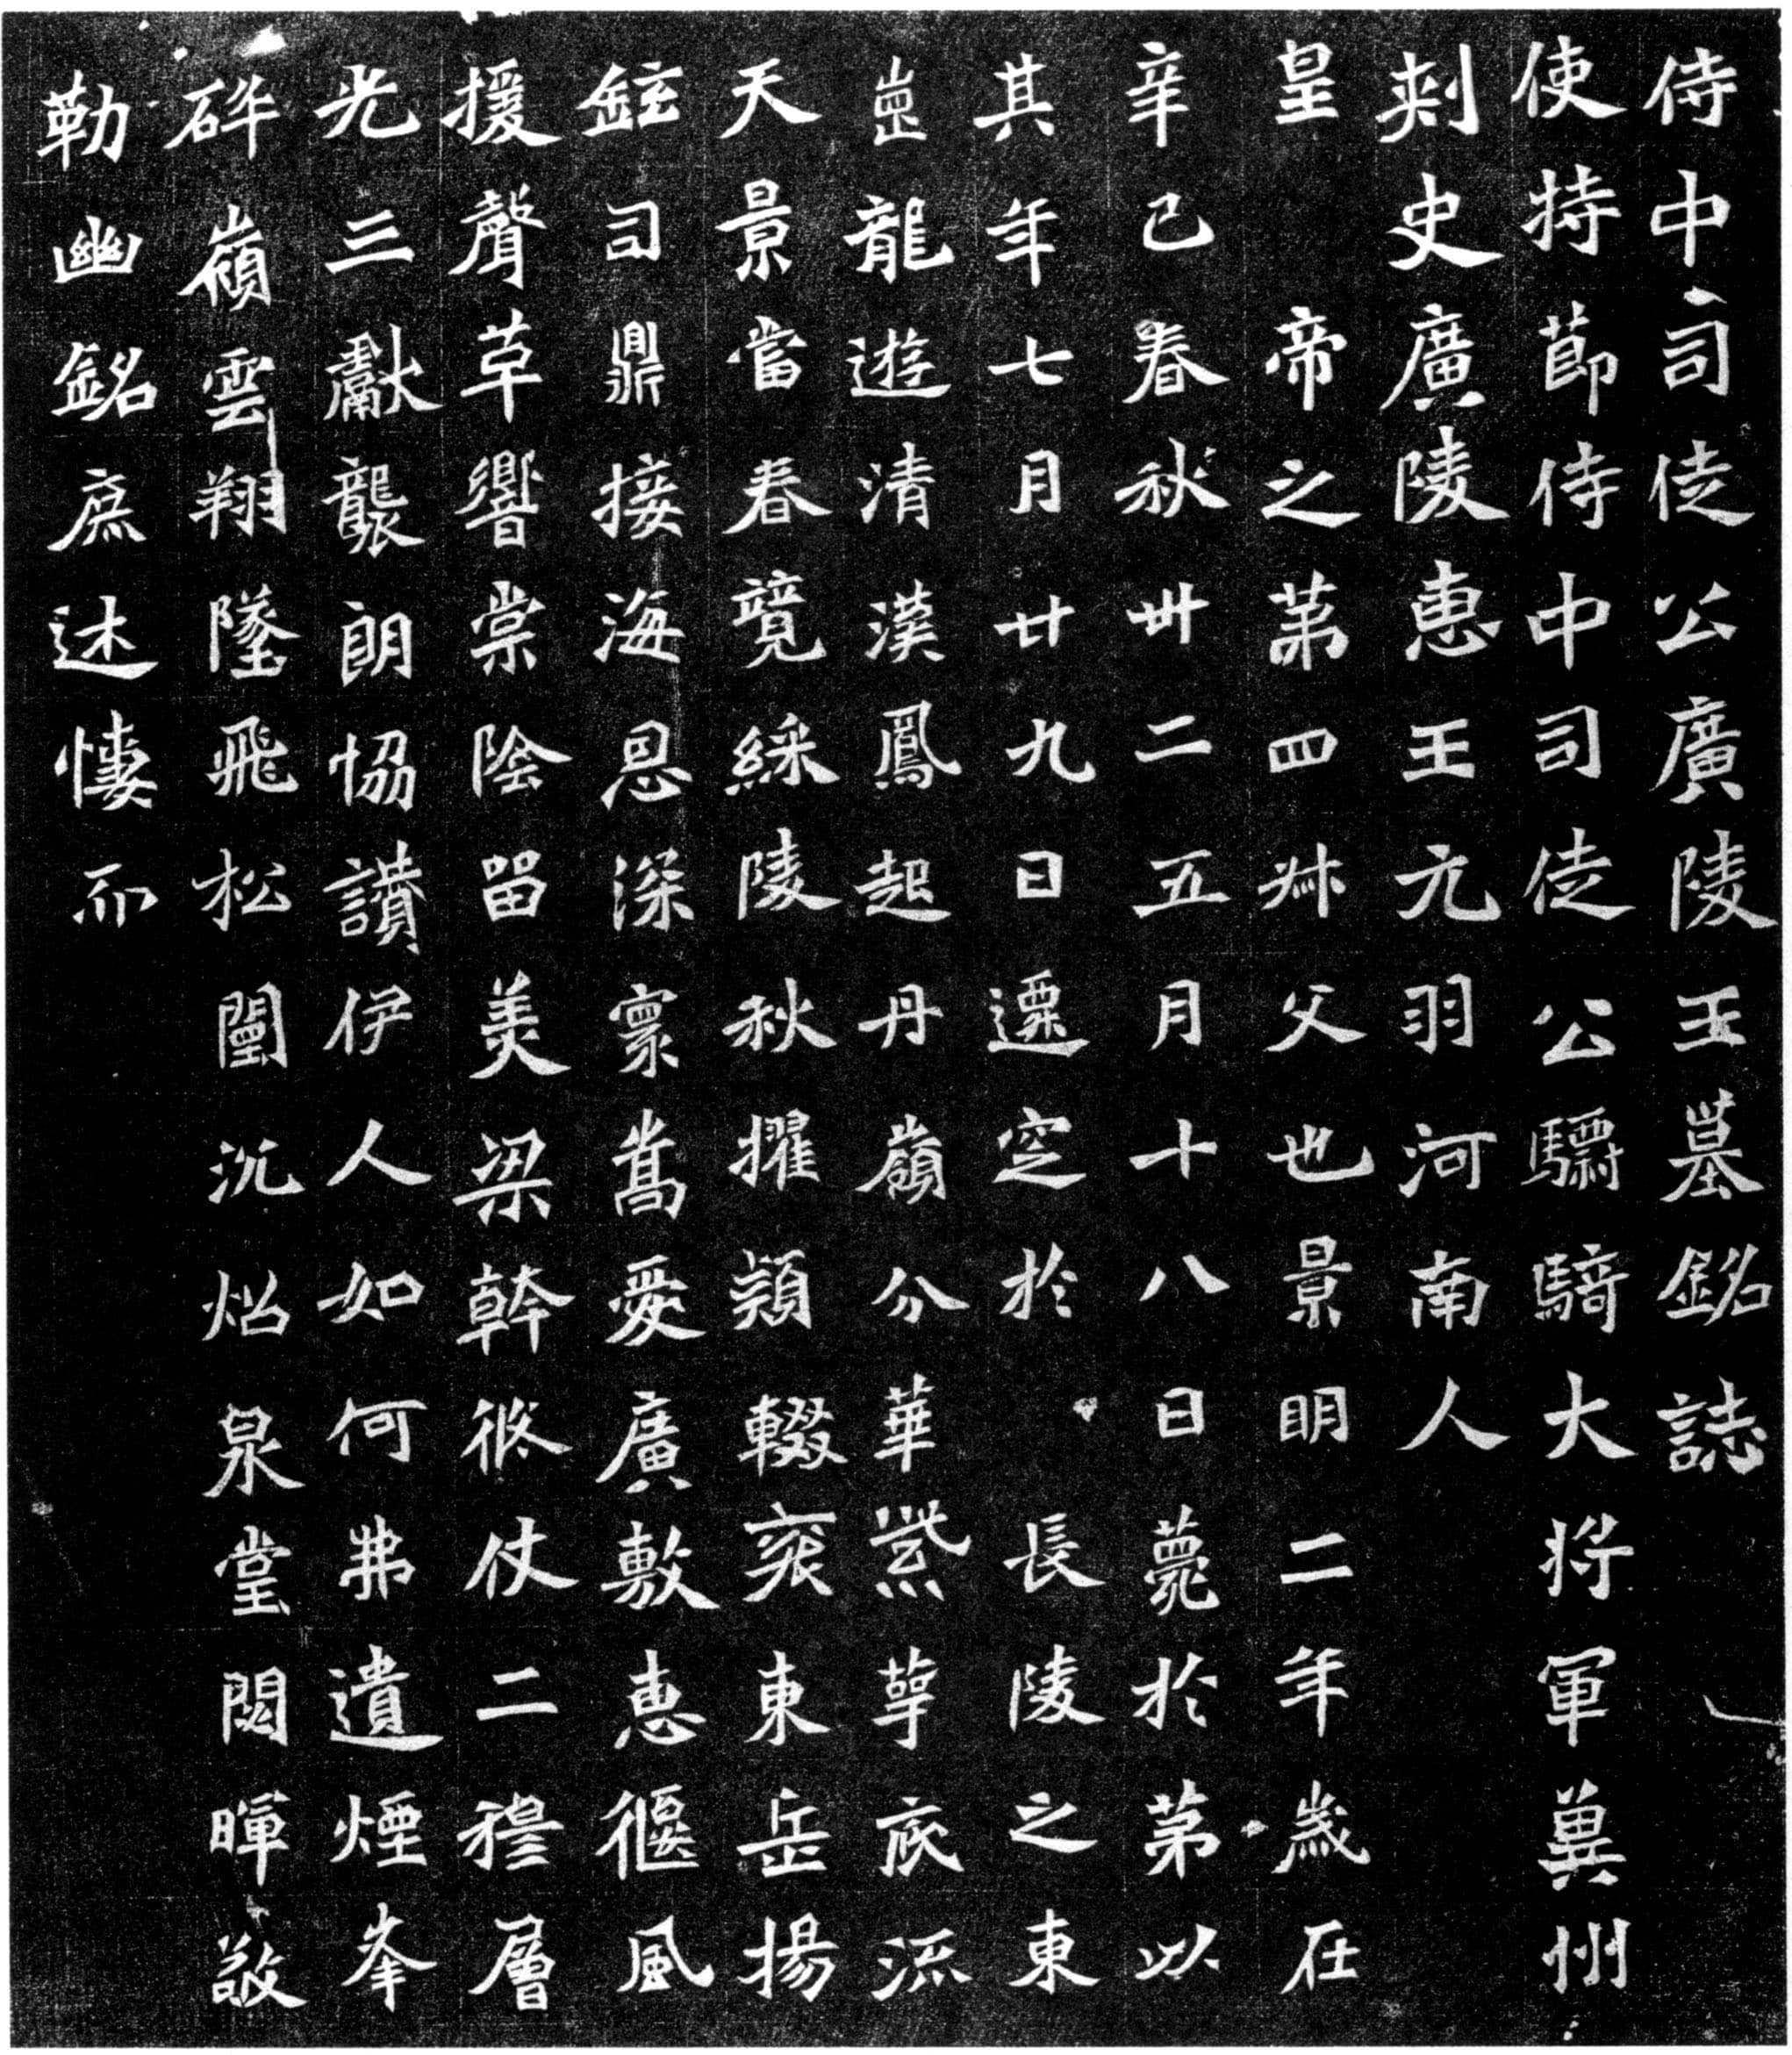 侍中司徒公廣陵王墓銘誌
使持節侍中司徒公驃騎大將軍冀州
刺史廣陵惠王元羽河南人
皇帝之第四叔父也景明二年歲在
辛巳春秋卅二五月十八日薨於第以
其年七月廿九日遷窆於長陵之東
崗龍遊清漢鳳起丹嶺分華紫萼底流
天景當春競綵陵秋擢穎輟衮東岳揚
鉉司鼎接海恩深寰嵩愛廣敷惠偃風
援聲草響棠陰留美梁幹循仗二穆層
光三獻襲朗協讚伊人如何弗遺煙峯
碎嶺雲翔墜飛松闉沉炤泉堂閟暉敬
勒幽銘庶述悽而